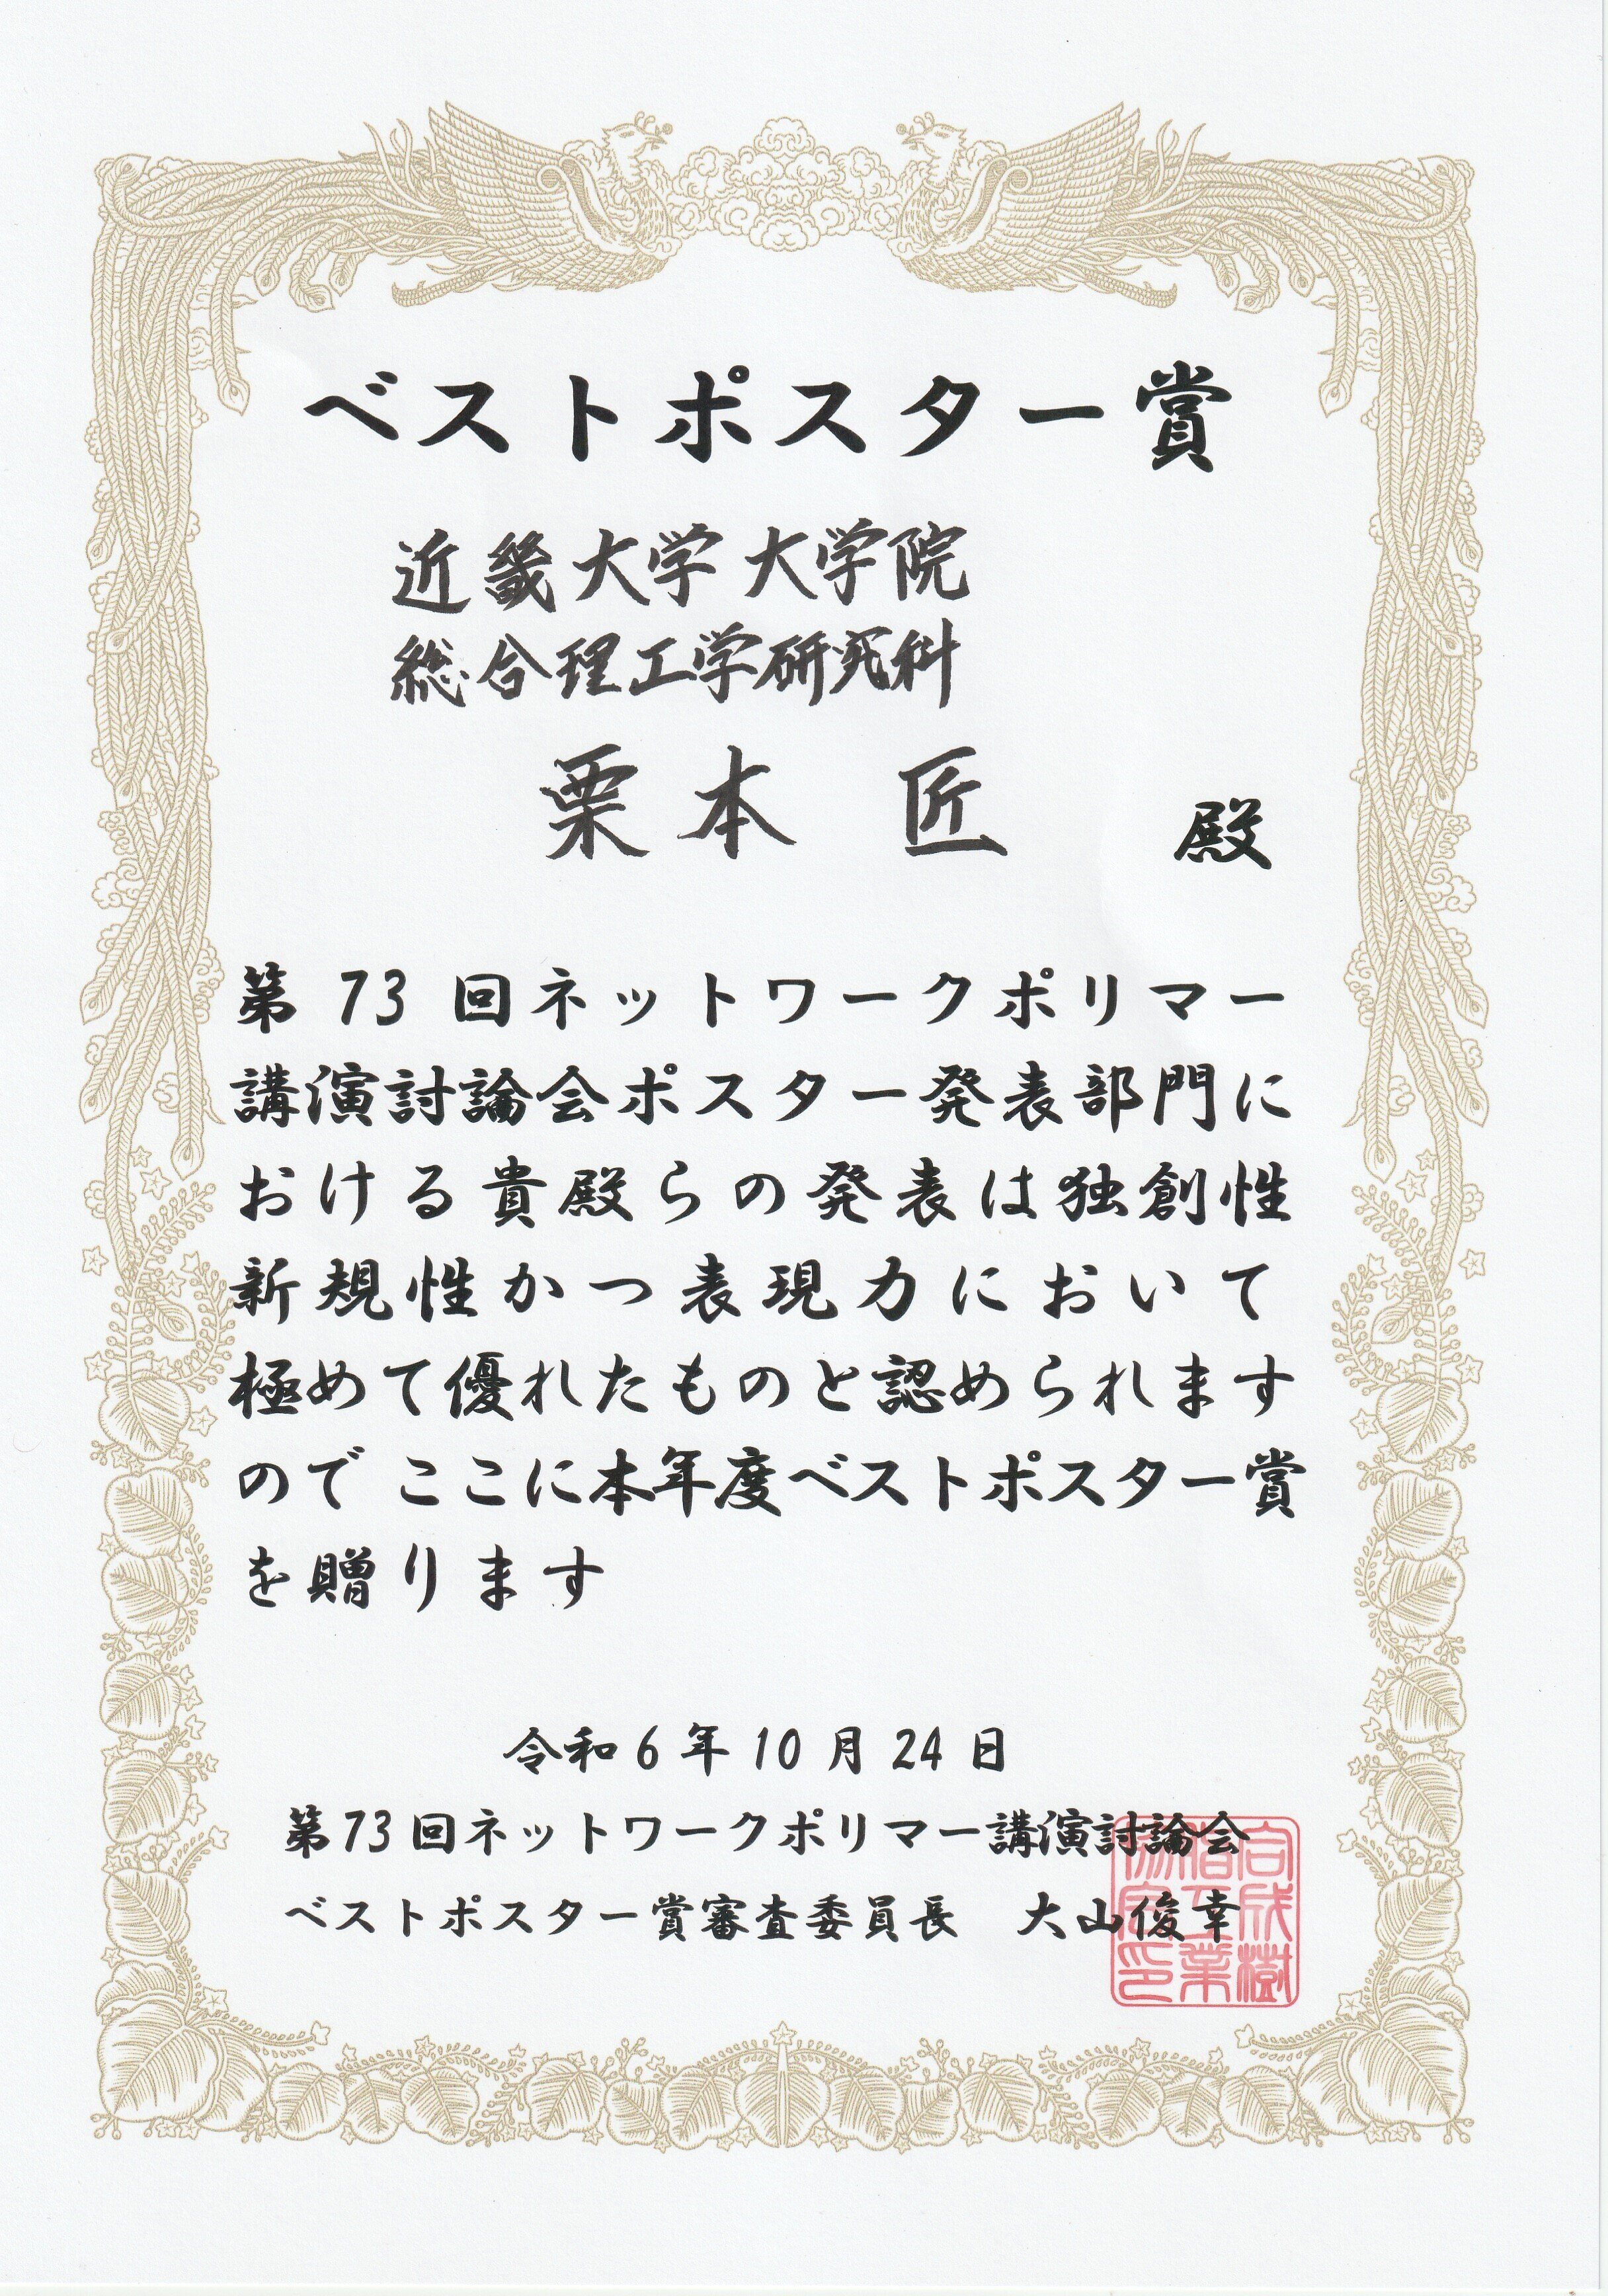 ベストポスター賞
近畿大学大学院
総合理工学研究科
栗本 匠 殿
第73回ネットワークポリマー
講演討論会ポスター発表部門に
おける貴殿らの発表は独創性
新規性かつ表現力において
極めて優れたものと認められます
ので ここに本年度ベストポスター賞
を贈ります
令和6年10月24日
第73回ネットワークポリマー講演討論会
ベストポスター賞審査委員長 大山俊幸
合成樹
脂工業
協会印